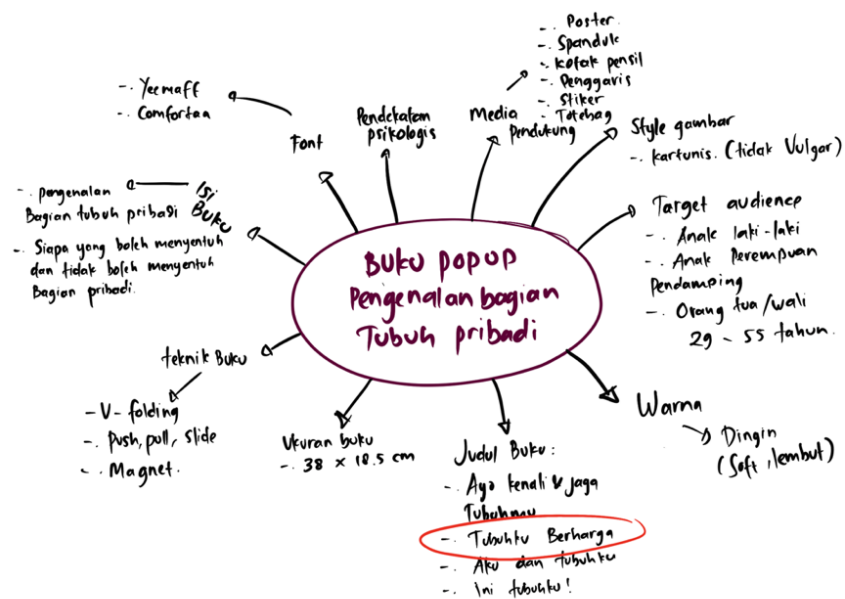 Buku popup
Pengenalan bagian
Tubuh pribadi
Font
-. Yeemaff
-. Comfortaa
Pendekatan
psikologis
Media
Pendukung
-. Poster.
-. Spanduk
-. Kotak pensil
-. Penggaris
-. Stiker
-. Totebag
Style gambar
-. kartunis. (tidak Vulgar)
Target audience
-. Anak laki-laki
-. Anak Perempuan
Pendamping
-. Orang tua/wali
29 - 55 tahun.
Warna
Dingin
(Soft, lembut)
Judul Buku:
-. Ayo kenali & jaga
Tubuhmu
-. Tubuhku Berharga
-. Aku dan tubuhku
-. Ini tubuhku!
Ukuran buku
-. 38 x 18.5 cm
teknik Buku
- V- folding
-. Push, pull, slide
-. Magnet.
Isi
Buku
-. pengenalan
Bagian tubuh pribadi
-. Siapa yang boleh menyentuh
dan tidak boleh menyentuh
Bagian pribadi.